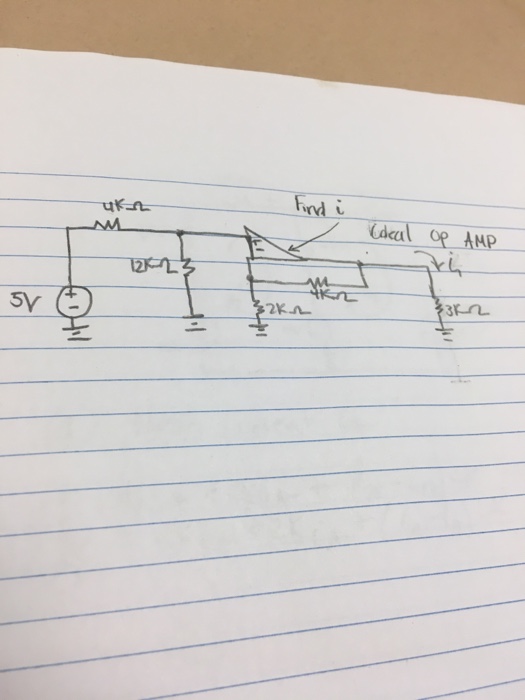 4KΩ
Find i
Ideal Op AMP
12KΩ
+
-
i
5V
+
-
4KΩ
2KΩ
3KΩ